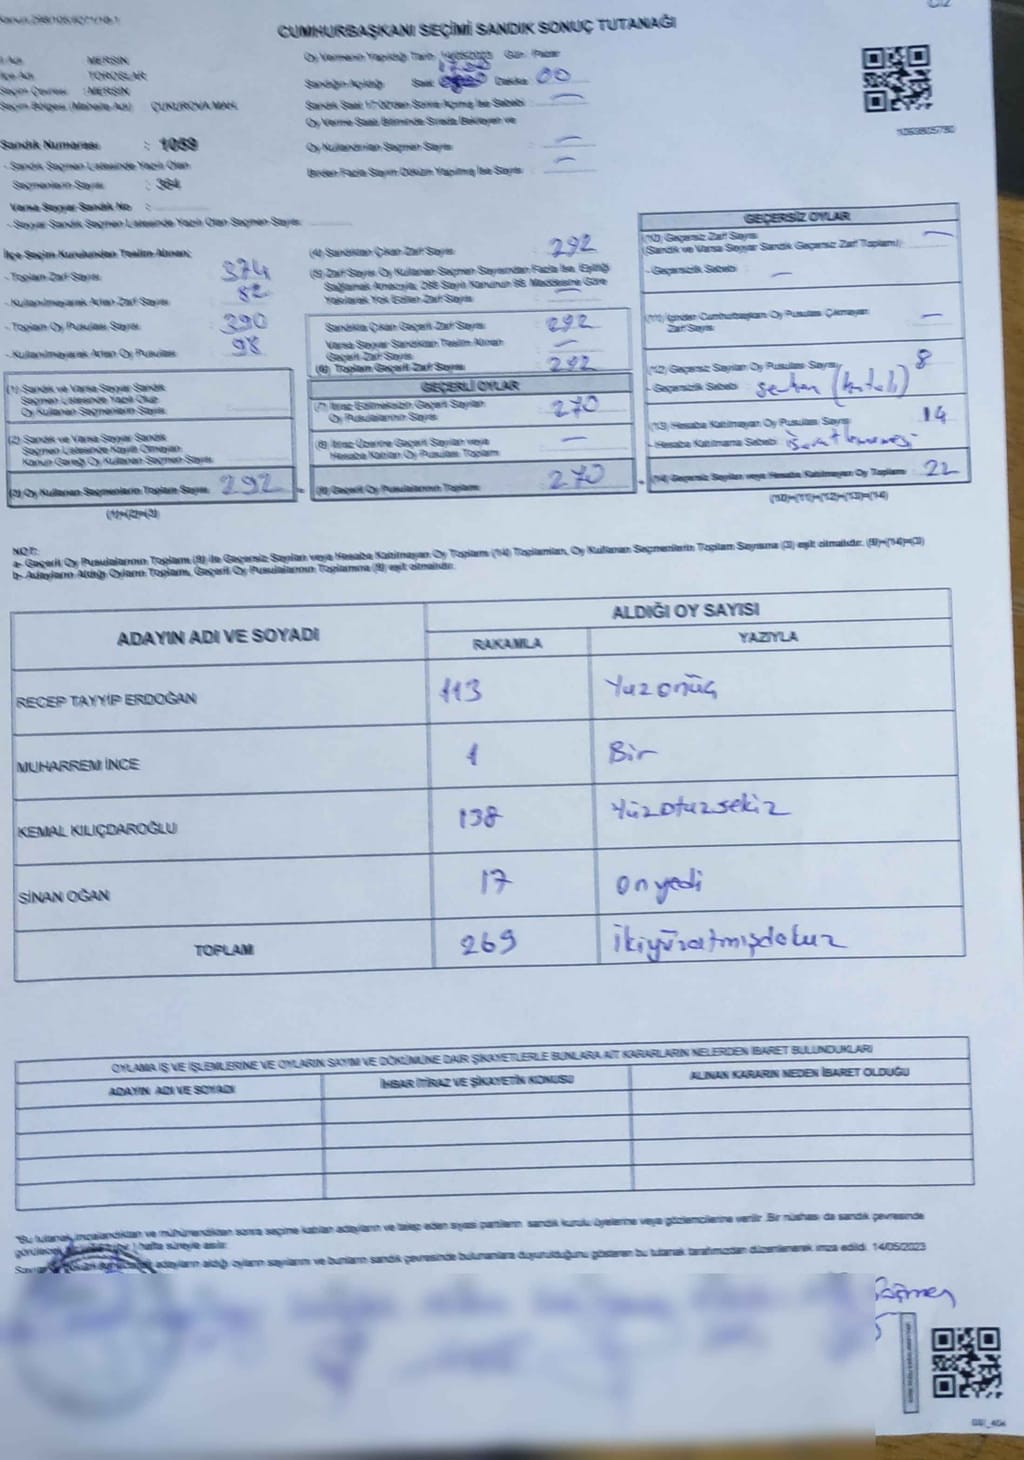 CUMHURBAŞKANI SEÇİMİ SANDIK SONUÇ TUTANAĞI
İl Adı : MERSİN
İlçe Adı : TOROSLAR
Seçim Çevresi : MERSİN
Seçim Bölgesi (Mahalle Adı) : ÇUKUROVA MAH.
Oy Vermenin Yapıldığı Tarih : 14/05/2023 Gün : Pazar
Sandığın Açıldığı Saat Dakika 00
Sandık Saat 17:00'den Sonra Açılmış İse Sebebi : —
Oy Verme Saati Bitiminde Sırada Bekleyen ve
Oy Kullandırılan Seçmen Sayısı : —
Birden Fazla Sayım Döküm Yapılmış İse Sayısı : —
1053805780
Sandık Numarası : 1059
- Sandık Seçmen Listesinde Yazılı Olan
Seçmenlerin Sayısı : 364
Varsa Seyyar Sandık No :
- Seyyar Sandık Seçmen Listesinde Yazılı Olan Seçmen Sayısı
İlçe Seçim Kurulundan Teslim Alınan;
- Toplam Zarf Sayısı 374
- Kullanılmayarak Artan Zarf Sayısı 82
- Toplam Oy Pusulası Sayısı 390
- Kullanılmayarak Artan Oy Pusulası 98
(1) Sandık ve Varsa Seyyar Sandık
Seçmen Listesinde Yazılı Olup
Oy Kullanan Seçmenlerin Sayısı
(2) Sandık ve Varsa Seyyar Sandık
Seçmen Listesinde Kayıtlı Olmayan
Kanun Gereği Oy Kullanan Seçmen Sayısı
(3) Oy Kullanan Seçmenlerin Toplam Sayısı 292
(1)+(2)=(3)
(4) Sandıktan Çıkan Zarf Sayısı : 292
(5) Zarf Sayısı Oy Kullanan Seçmen Sayısından Fazla İse, Eşitliği
Sağlamak Amacıyla, 298 Sayılı Kanunun 98. Maddesine Göre
Yakılarak Yok Edilen Zarf Sayısı : —
Sandıkta Çıkan Geçerli Zarf Sayısı : 292
Varsa Seyyar Sandıktan Teslim Alınan
Geçerli Zarf Sayısı : —
(6) Toplam Geçerli Zarf Sayısı : 292
GEÇERLİ OYLAR
(7) İtiraz Edilmeksizin Geçerli Sayılan
Oy Pusulalarının Sayısı : 270
(8) İtiraz Üzerine Geçerli Sayılan veya
Hesaba Katılan Oy Pusulası Toplamı : —
(9) Geçerli Oy Pusulalarının Toplamı : 270
GEÇERSİZ OYLAR
(10) Geçersiz Zarf Sayısı —
(Sandık ve Varsa Seyyar Sandık Geçersiz Zarf Toplamı)
- Geçersizlik Sebebi : —
(11) İçinden Cumhurbaşkanı Oy Pusulası Çıkmayan
Zarf Sayısı —
(12) Geçersiz Sayılan Oy Pusulası Sayısı 8
- Geçersizlik Sebebi :
(13) Hesaba Katılmayan Oy Pusulası Sayısı 14
- Hesaba Katılmama Sebebi :
(14) Geçersiz Sayılan veya Hesaba Katılmayan Oy Toplamı 22
(10)+(11)+(12)+(13)=(14)
NOT:
a- Geçerli Oy Pusulalarının Toplamı (9) ile Geçersiz Sayılan veya Hesaba Katılmayan Oy Toplamı (14) Toplamları, Oy Kullanan Seçmenlerin Toplam Sayısına (3) eşit olmalıdır. (9)+(14)=(3)
b- Adayların Aldığı Oyların Toplamı, Geçerli Oy Pusulalarının Toplamına (9) eşit olmalıdır.
ADAYIN ADI VE SOYADI
ALDIĞI OY SAYISI
RAKAMLA YAZIYLA
RECEP TAYYİP ERDOĞAN 113 Yüzonüç
MUHARREM İNCE 1 Bir
KEMAL KILIÇDAROĞLU 138 Yüzotuzsekiz
SİNAN OĞAN 17 onyedi
TOPLAM 269 İkiyüzatmışdokuz
OYLAMA İŞ VE İŞLEMLERİNE VE OYLARIN SAYIM VE DÖKÜMÜNE DAİR ŞİKAYETLERLE BUNLARA AİT KARARLARIN NELERDEN İBARET BULUNDUKLARI
ADAYIN ADI VE SOYADI İHBAR İTİRAZ VE ŞİKAYETİN KONUSU ALINAN KARARIN NEDEN İBARET OLDUĞU
*Bu tutanak imzalandıktan ve mühürlendikten sonra seçime katılan adayların ve talep eden siyasi partilerin sandık kurulu üyelerine veya gözlemcilerine verilir. Bir nüshası da sandık çevresinde
hafta süreyle asılır.
adayların aldığı oyların sayılarını ve bunların sandık çevresinde bulunanlara duyurulduğunu gösteren bu tutanak tarafımızdan düzenlenerek imza edildi. 14/05/2023